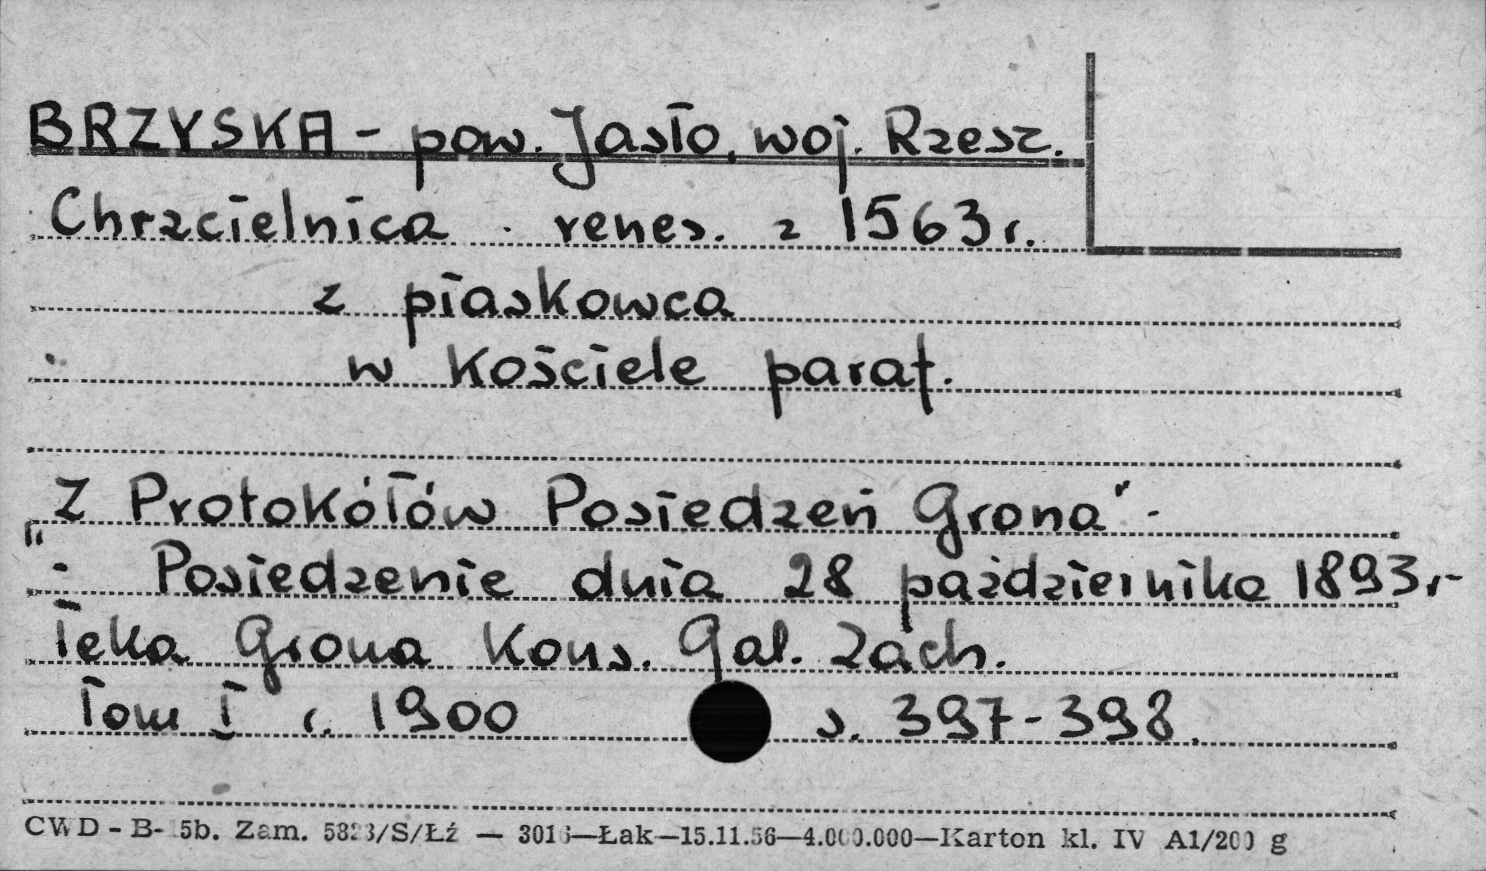 BRZYSKA - pow. Jasło, woj. Rzesz.
Chrzcielnica renes. z 1563 r.
z piaskowca
w Kościele paraf.
"Z Protokółów Posiedzeń Grona" -
- Posiedzenie dnia 28 października 1893 r -
Teka Grona Kons. Gal. Zach.
Tom I r. 1900 s. 397-398.
CWD - B- 5b. Zam. /S/Łź — —Łak—15.11.56—4.000.000—Karton kl. IV A1/200 g